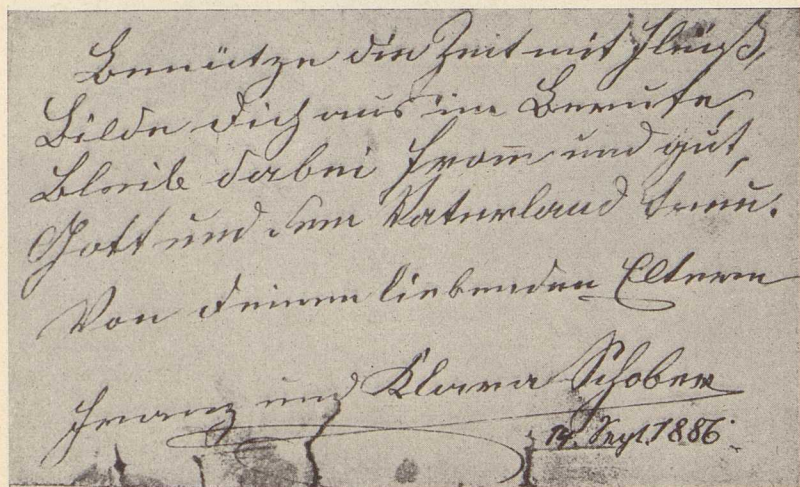 Benütze die Zeit mit Fleiß,
Bilde Dich aus im Berufe,
Bleib dabei from̅ und gut,
Gott und dem Vaterland treu.
Von Deinen liebenden Eltern
Franz und Klara Schober
14. Sept. 1886.